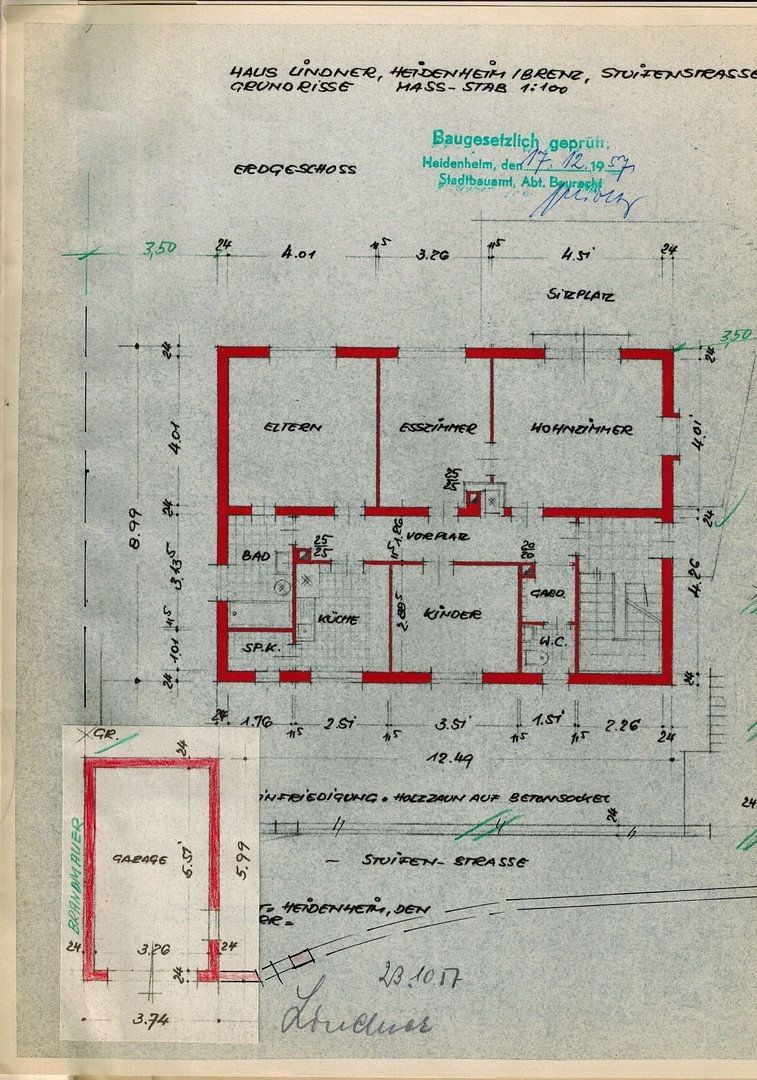 HAUS LINDNER, HEIDENHEIM/BRENZ, STUIFENSTRASSE
GRUNDRISSE MASS-STAB 1:100
Baugesetzlich geprüft:
Heidenheim, den 17.12.1957
Stadtbauamt, Abt. Baurecht
ERDGESCHOSS
3,50
24 4.01 11⁵ 3.26 11⁵ 4.51 24
SITZPLATZ
3,50
24
24
4.01
ELTERN
ESSZIMMER
WOHNZIMMER
4.01
8.99
24
24
VORPLATZ
1.26
11⁵
25
25
BAD
3.13⁵
4.26
KÜCHE
2.88⁵
KINDER
GARD.
W.C.
11⁵
SP.K.
1.01
24
24
24 1.76 11⁵ 2.51 11⁵ 3.51 11⁵ 1.51 11⁵ 2.26 24
12.49
GR.
24
INFRIEDIGUNG = HOLZZAUN AUF BETONSOCKEL
24
24
GARAGE
5.51
5.99
BRANDMAUER
– STUIFEN-STRASSE
T= HEIDENHEIM, DEN
ER=
24 3.26 24
24
3.74
23.10.57
Lindner